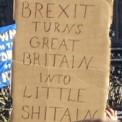 BREXIT
TURNS
GREAT
BRITAIN
INTO
LITTLE
SHITAIN